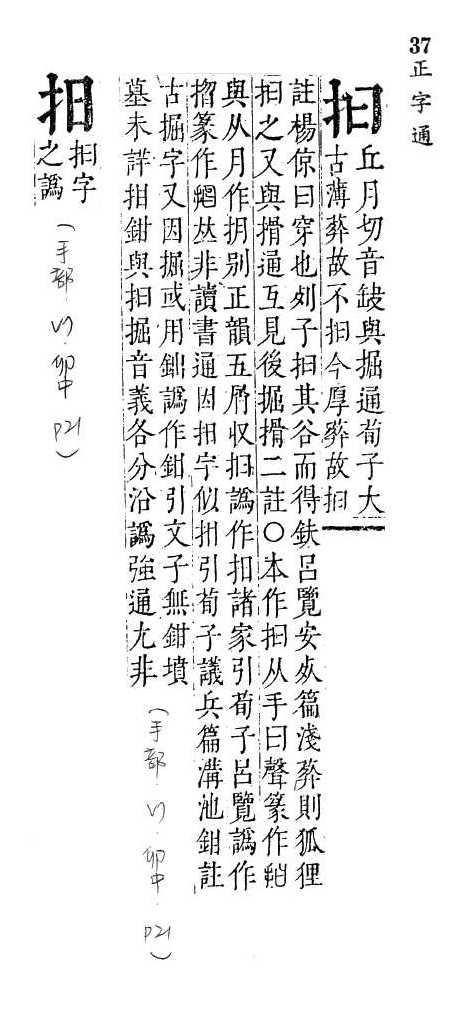 37 正字通
抇
丘月切音缺與掘通荀子大
古薄葬故不抇今厚葬故抇
註楊倞曰穿也列子抇其谷而得鈇呂覽安𣦸篇淺葬則狐狸
抇之又與搰通互見後掘搰二註○本作抇从手曰聲篆作
與从月作抈别正韻五屑収抇譌作扣諸家引荀子呂覽譌作
搰篆作𠀤非讀書通因抇字似拑引荀子議兵篇溝池鉗註
古掘字又因掘或用鈯譌作鉗引文子無鉗墳
墓未詳拑鉗與抇掘音義各分沿譌強通尤非
（手部．卯中．P21）
抇字
之譌
（手部．卯中 P21）